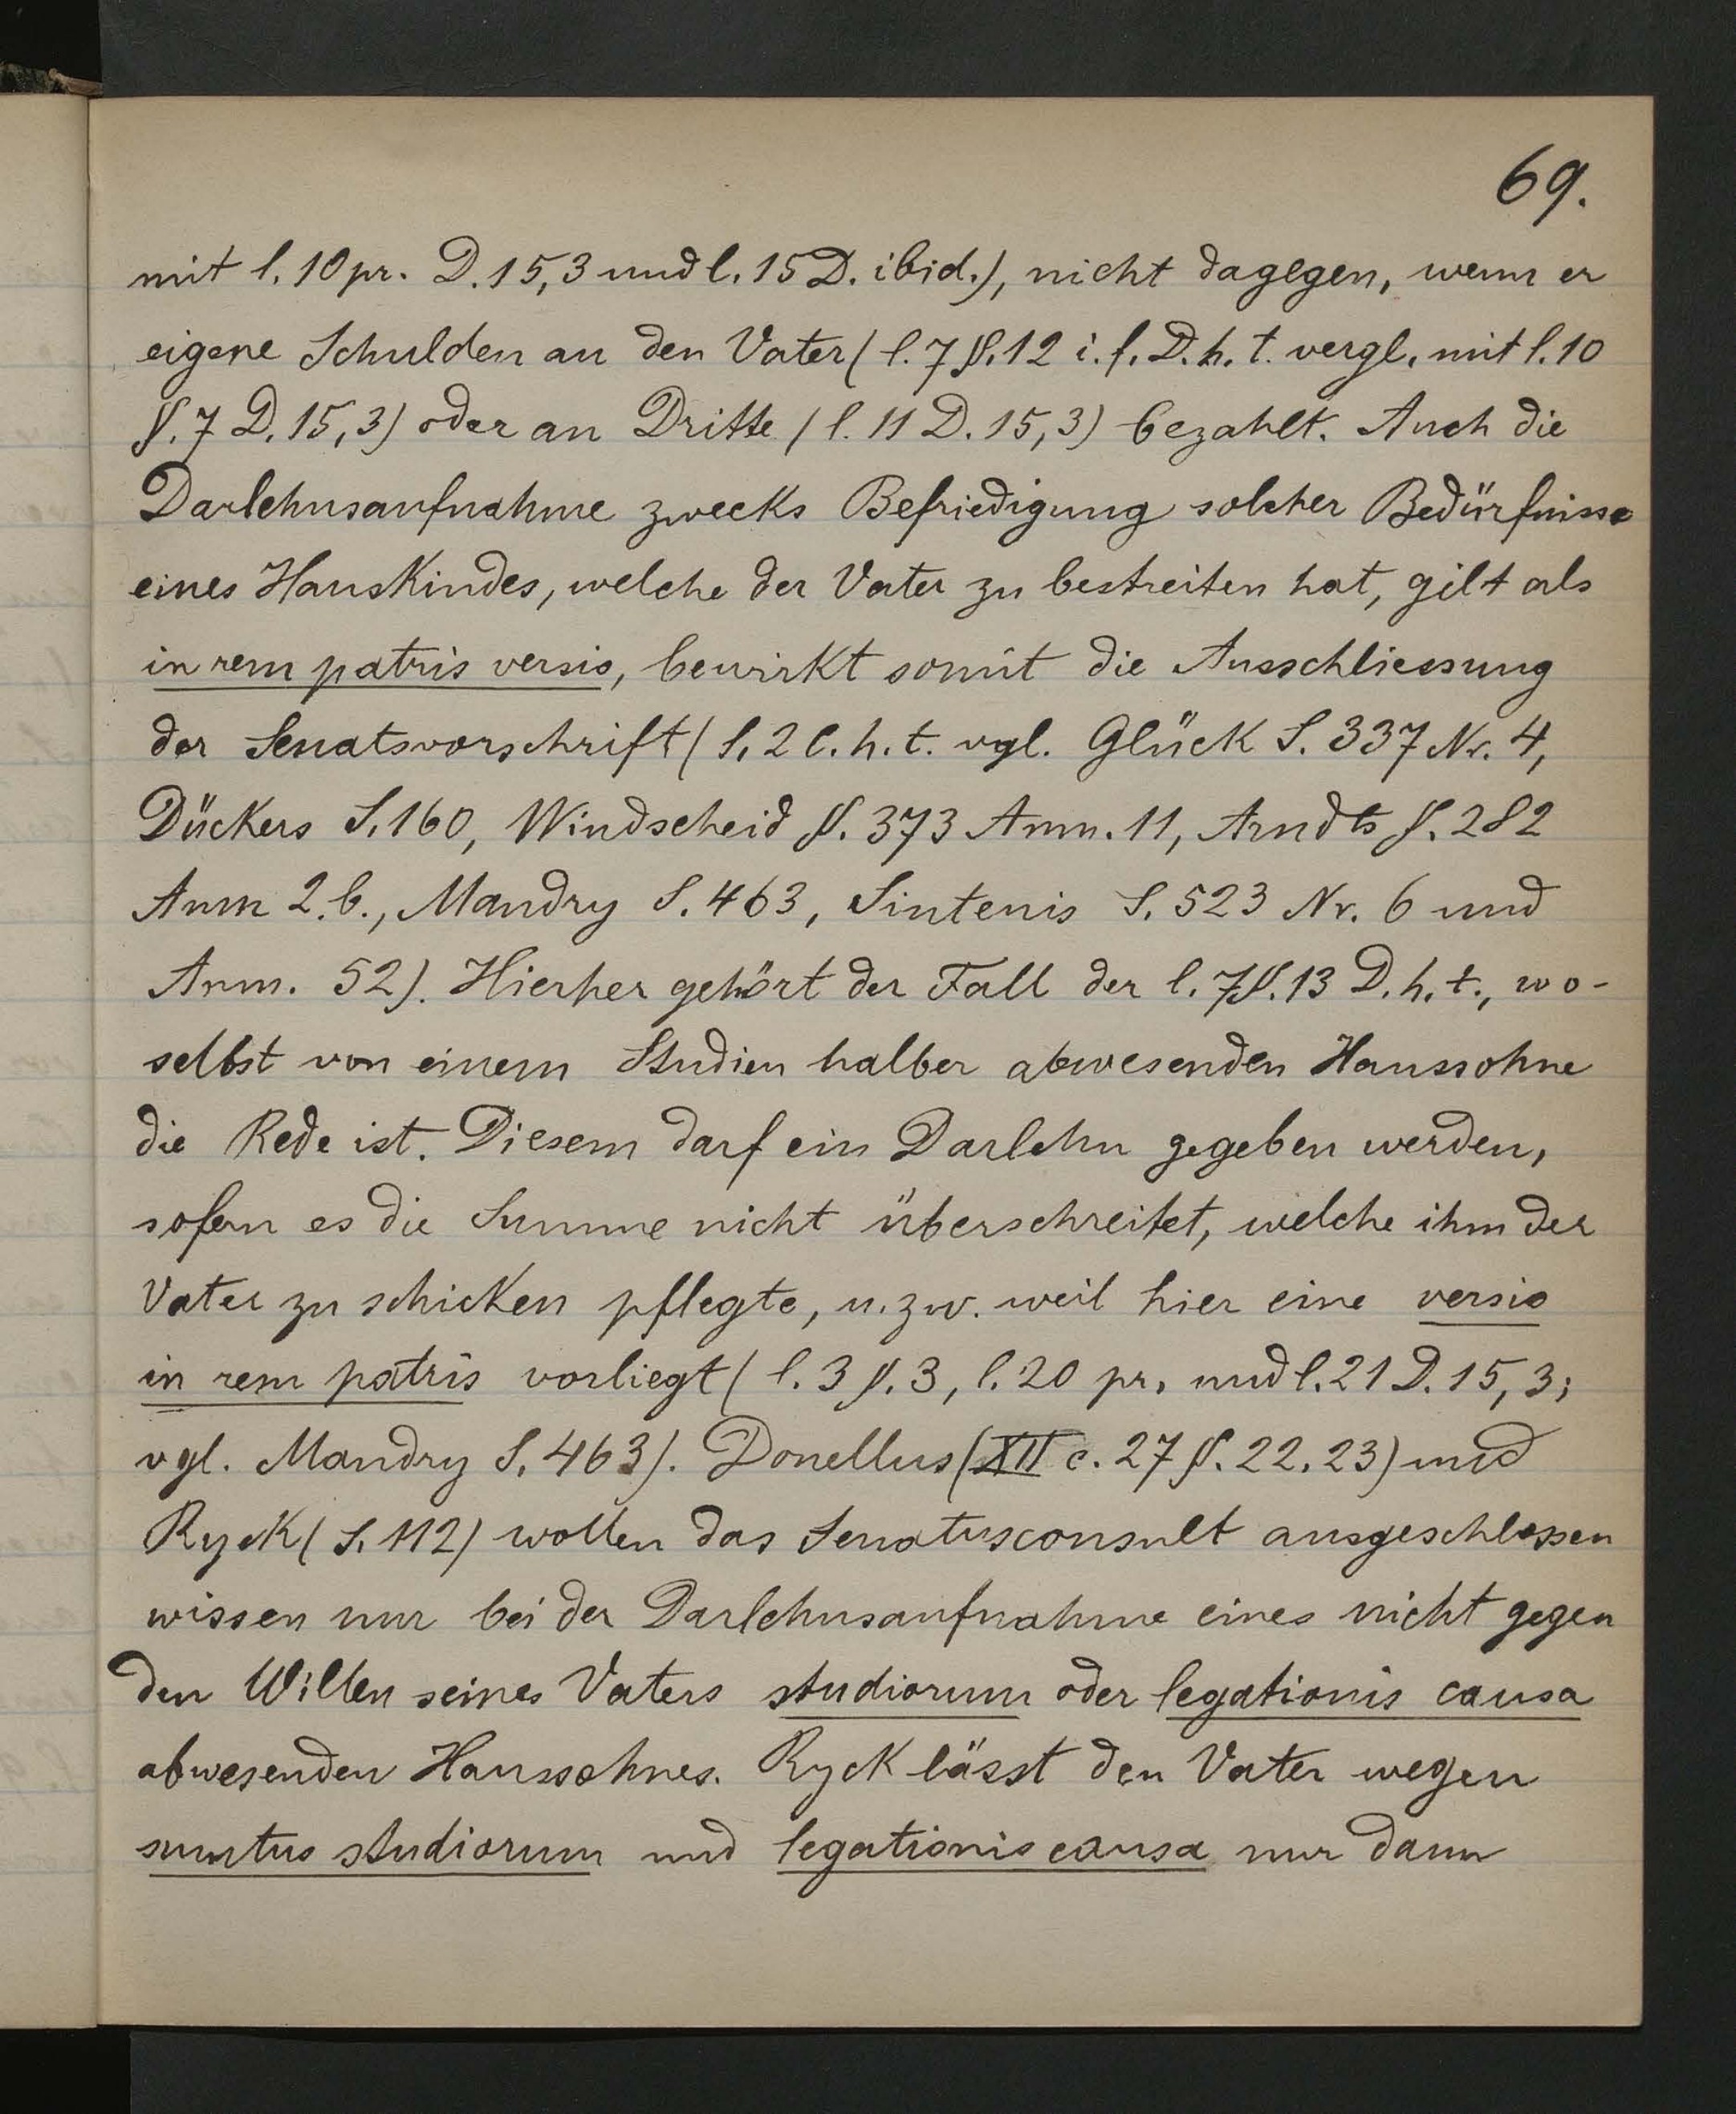 69.
mit l. 10 pr. D. 15,3 und l. 15 D. ibid.), nicht dagegen, wenn er
eigene Schulden an den Vater (l. 7 §. 12 i. f. D. h. t. vergl. mit l. 10
§. 7 D. 15,3) oder an Dritte (l. 11 D. 15,3) bezahlt. Auch die
Darlehnsaufnahme zwecks Befriedigung solcher Bedürfnisse
eines Hauskindes, welche der Vater zu bestreiten hat, gilt als
in rem patris versio, bewirkt somit die Ausschliessung
der Senatsvorschrift (l. 2 C. h. t. vgl. Glück S. 337 Nr. 4,
Dückers S. 160, Windscheid §. 373 Anm. 11, Arndts §. 282
Anm 2.b., Mandry S. 463, Sintenis S. 523 Nr. 6 und
Anm. 52). Hierher gehört der Fall der l. 7 §. 13 D. h. t., wo-
selbst von einem Studien halber abwesenden Haussohne
die Rede ist. Diesem darf ein Darlehn gegeben werden,
sofern es die Summe nicht überschreitet, welche ihm der
Vater zu schicken pflegte, u. zw. weil hier eine versio
in rem patris vorliegt (l. 3 §. 3, l. 20 pr. und l. 21 D. 15, 3;
vgl. Mandry S. 463). Donellus (XII c. 27 §. 22. 23) und
Ryck (S. 112) wollen das Senatusconsult ausgeschlossen
wissen nur bei der Darlehnsaufnahme eines nicht gegen
den Willen seines Vaters studiorum oder legationis causa
abwesenden Haussohnes. Ryck lässt den Vater wegen
sumtus studiorum und legationis causa nur dann